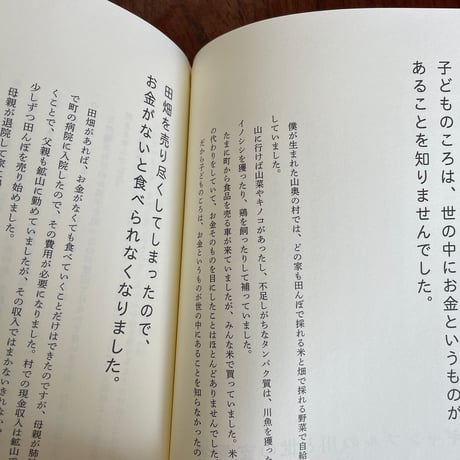 子どものころは、世の中にお金というものが
あることを知りませんでした。
僕が生まれた山奥の村では、どの家も田んぼで採れる米と畑で採れる野菜で自給
していました。
山に行けば山菜やキノコがあったし、不足しがちなタンパク質は、川魚を獲った
イノシシを獲ったり、鶏を飼ったりして補っていました。
たまに町から食品を売る車が来ていましたが、みんな米で買っていました。米
の代わりをしていて、お金そのものを目にしたことはほとんどありませんでした。
だから子どものころは、お金というものが世の中にあることを知らなかったの
田畑を売り尽くしてしまったので、
お金がないと食べられなくなりました。
田畑があれば、お金がなくても食べていくことだけはできたのですが、母親が肺
で町の病院に入院したので、その費用が必要になりました。村での現金収入は鉱山で
くことで、父親も鉱山に勤めていましたが、その収入ではまかないきれな
少しずつ田んぼを売り始めました。
母親が退院して家に